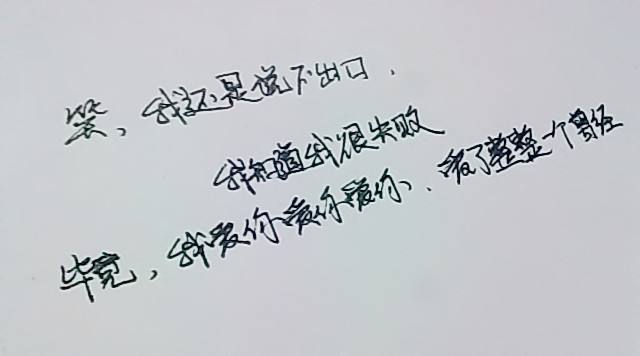 笑、我还是说不出口.
我知道我很失败
毕竟,我爱你爱你爱你、爱了整整一个曾经